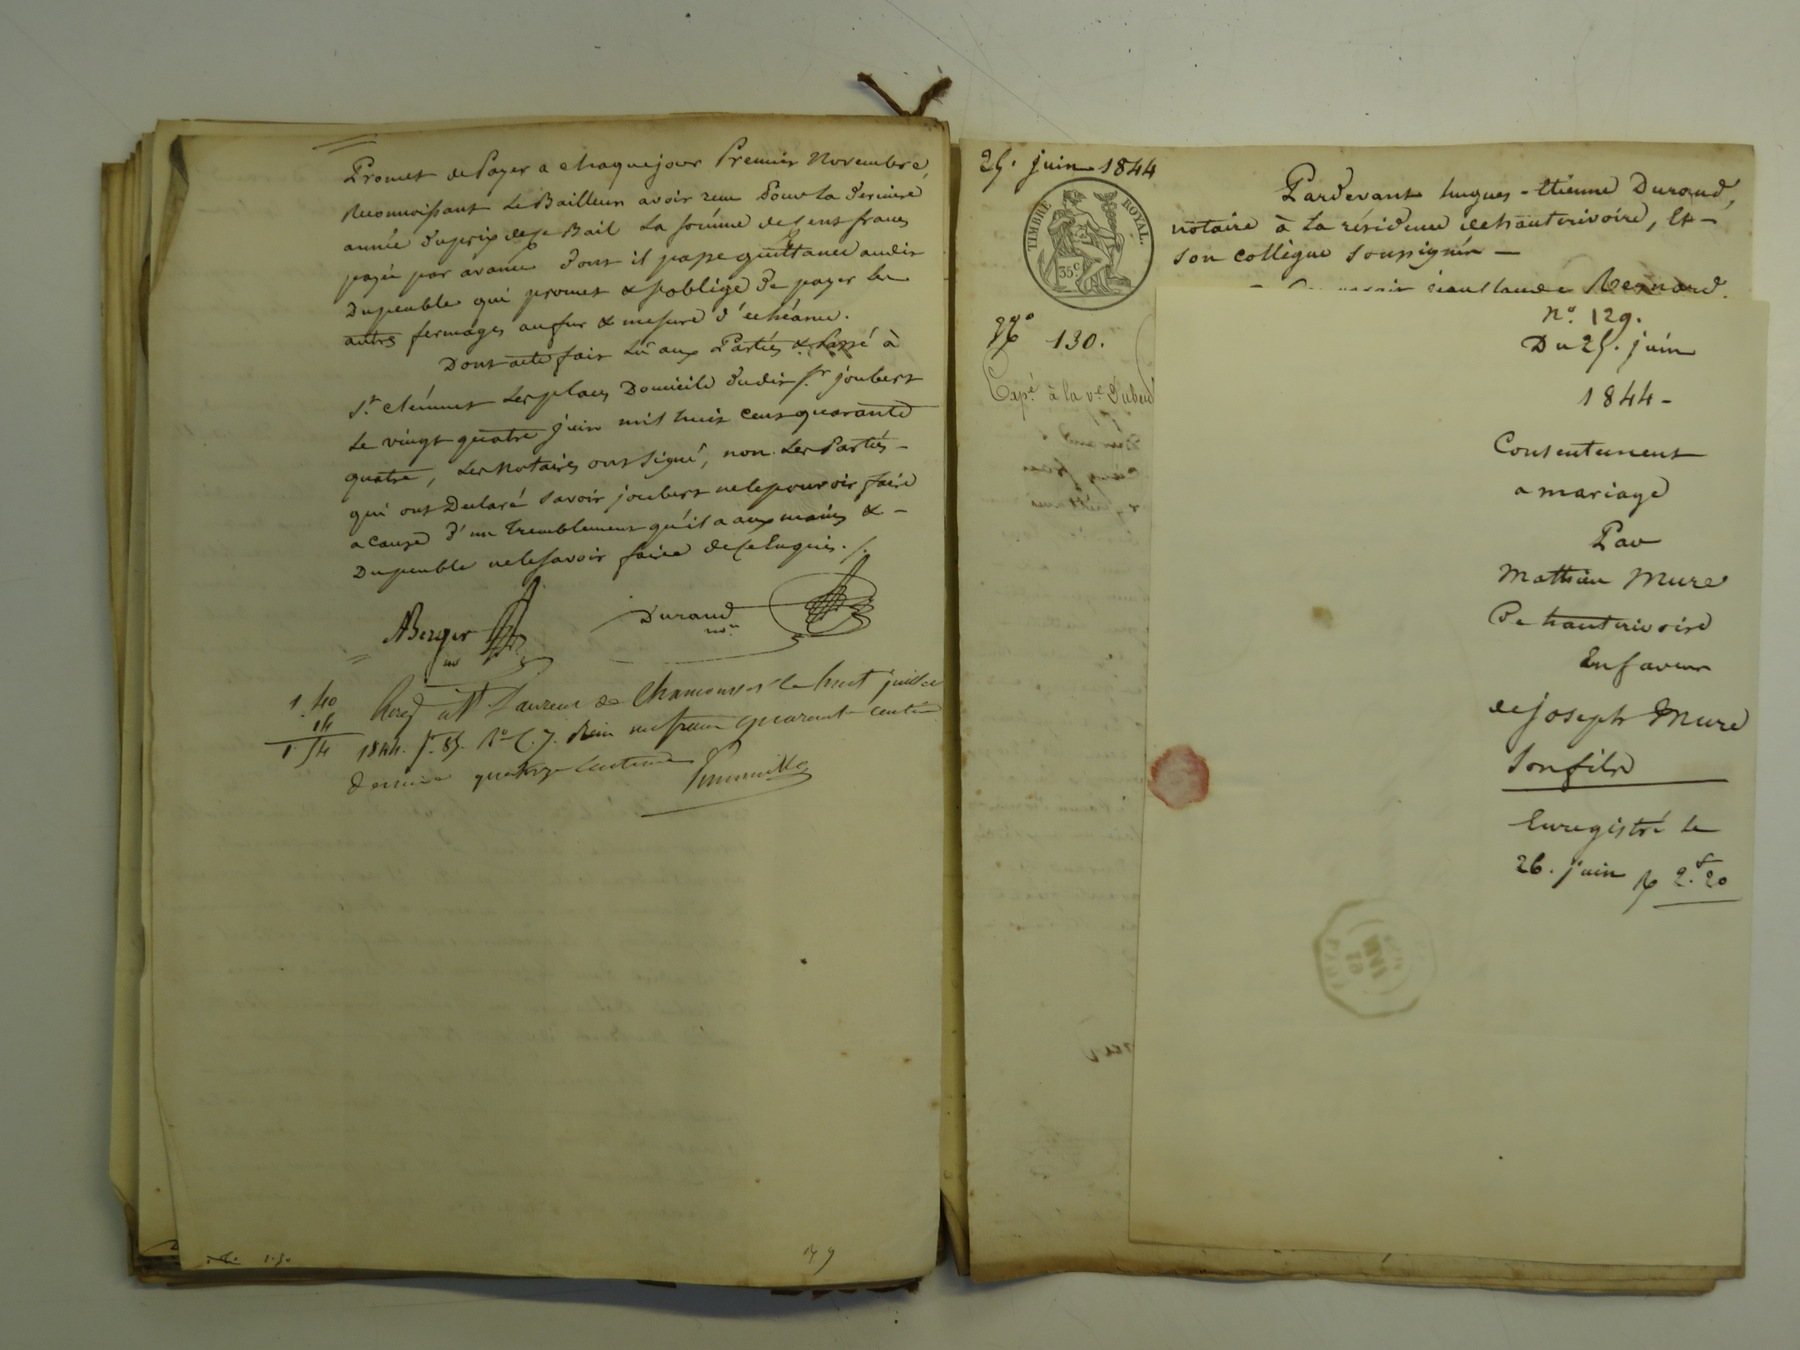 Promet de Payer a chaque jour Premier Novembre,
Reconnoissant Le Bailleur avoir reçu Pour La derniere
année du prix de ce Bail La somme de Cent francs
payée par avance dont il passe quittance audit
Dupeuble qui promet & s'oblige de payer les
autres fermages au fur & mesure d'échéance.
Dont acte fait Lû aux Parties & Passé à
St. Clément Les places Domicile dudit Sr. joubert
Le vingt quatre juin mil huit cent quarante
quatre, Les Notaires ont signé, non Les Parties
qui ont Déclaré savoir joubert ne le pouvoir faire
a cause d'un Tremblement qu'il a aux mains & -
Dupeuble ne le savoir faire de ce Enquis. /.
ABerger
no
Durand
nore
1. 40
14
1. 54
St Laurent de Chamousset le huit juillet
1844. fo. 85. Ro. C. 7. Reçu un franc quarante centimes
décime quatorze centimes
1.50
25. juin 1844
TIMBRE ROYAL.
35c
No 130.
Expé. à la ve. Dubeu
Pardevant hugues-Etienne Durand,
notaire à La résidence de hauterivoire, Et -
son collègue soussignés -
jean claude
no. 129.
Du 25. juin
1844 -
Consentement
a mariage
Par
Mathieu Mure
De hauterivoire
En faveur
de joseph Mure
Son fils
Enregistré le
26. juin 2.f 20